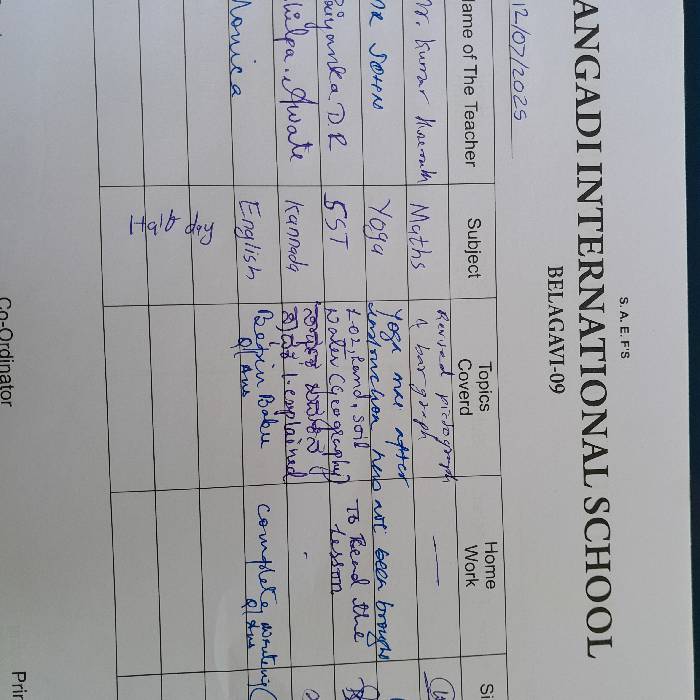 S. A. E. F'S
ANGADI INTERNATIONAL SCHOOL
BELAGAVI-09
12/07/2025
Name of The Teacher Subject Topics Coverd Home Work
Mr. Kumar Maths Revised pictograph & bar graph —
JOHN Yoga Yoga mat after instruction has not been brought
Priyanka. D R SST L-02, Land, Soil Water (Geography) To Read the Lesson
Shilpa. Awate Kannada explained -
Monica English Bepin Babu Q/Ans complete writing Q/Ans
Half day
Co-Ordinator